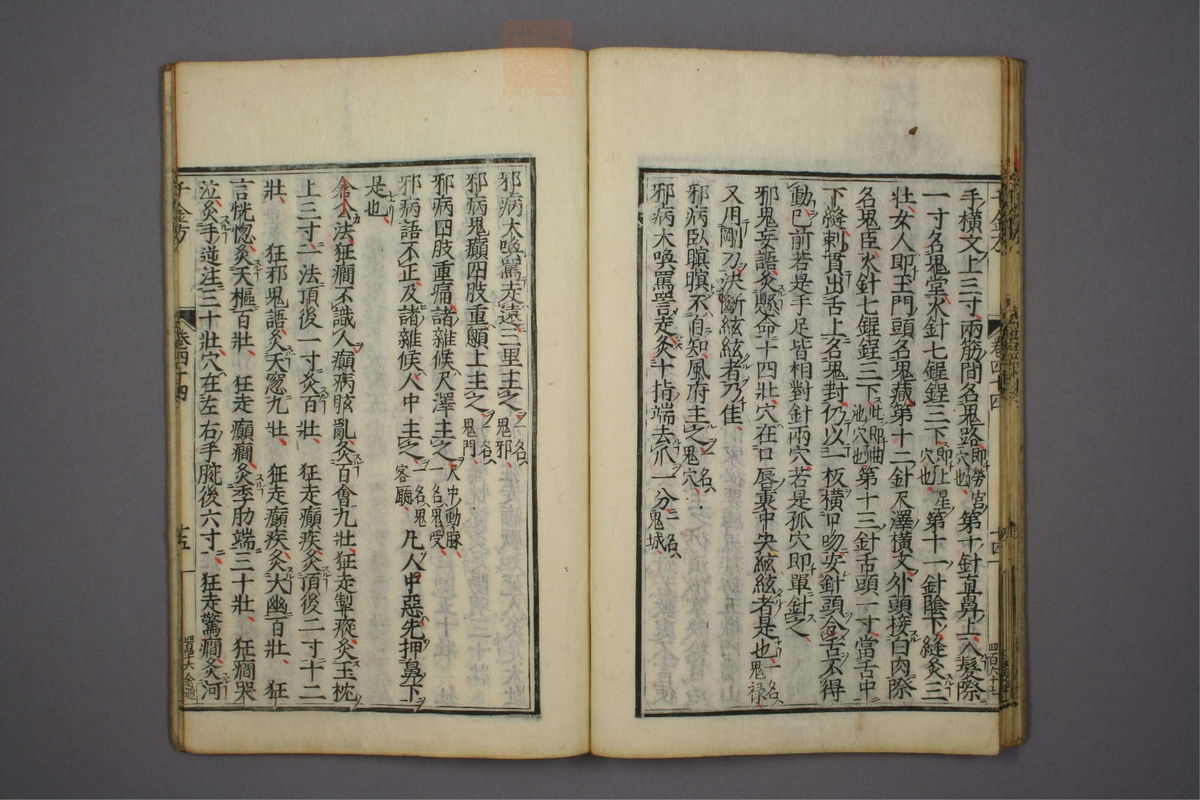 手橫文上三寸兩筋間名鬼路即勞宮穴也第十針直鼻上入髮際
一寸名鬼堂火針七鋥鋥三下即上星穴也第十一針陰下縫灸三
壯女人即玉門頭名鬼藏第十二針尺澤橫文外頭接白肉際
名鬼臣火針七鋥鋥三下此即曲池穴也第十三針舌頭一寸當舌中
下縫刺貫出舌上名鬼封仍以一板橫口吻安針頭令舌不得
動已前若是手足皆相對針兩穴若是孤穴即單針之
邪鬼妄語灸懸命十四壯穴在口唇裏中央絃絃者是也一名鬼祿
又用剛刀決斷絃絃者乃佳
邪病臥瞑瞑不自知風府主之一名鬼穴
邪病大喚罵詈走灸十指端去爪一分一名鬼城
千金方 卷四十四 十四
邪病大喚罵走遠三里主之一名鬼邪
邪病鬼癲四肢重顖上主之一名鬼門
邪病四肢重痛諸雜候尺澤主之人中動脉一名鬼受
邪病語不正及諸雜候人中主之一名鬼客廳凡人中惡先押鼻下
是也
倉公法狂癇不識人癲病眩亂灸百會九壯狂走掣瘲灸玉枕
上三寸一法頂後一寸灸百壯 狂走癲疾灸頂後二寸十二
壯 狂邪鬼語灸天窻九壯 狂走癲疾灸大幽百壯 狂
言恍惚灸天樞百壯 狂走癲癇灸季肋端三十壯 狂癇哭
泣灸手逆注三十壯穴在左右手腕後六寸 狂走驚癇灸河
千金方 卷四十四 十五